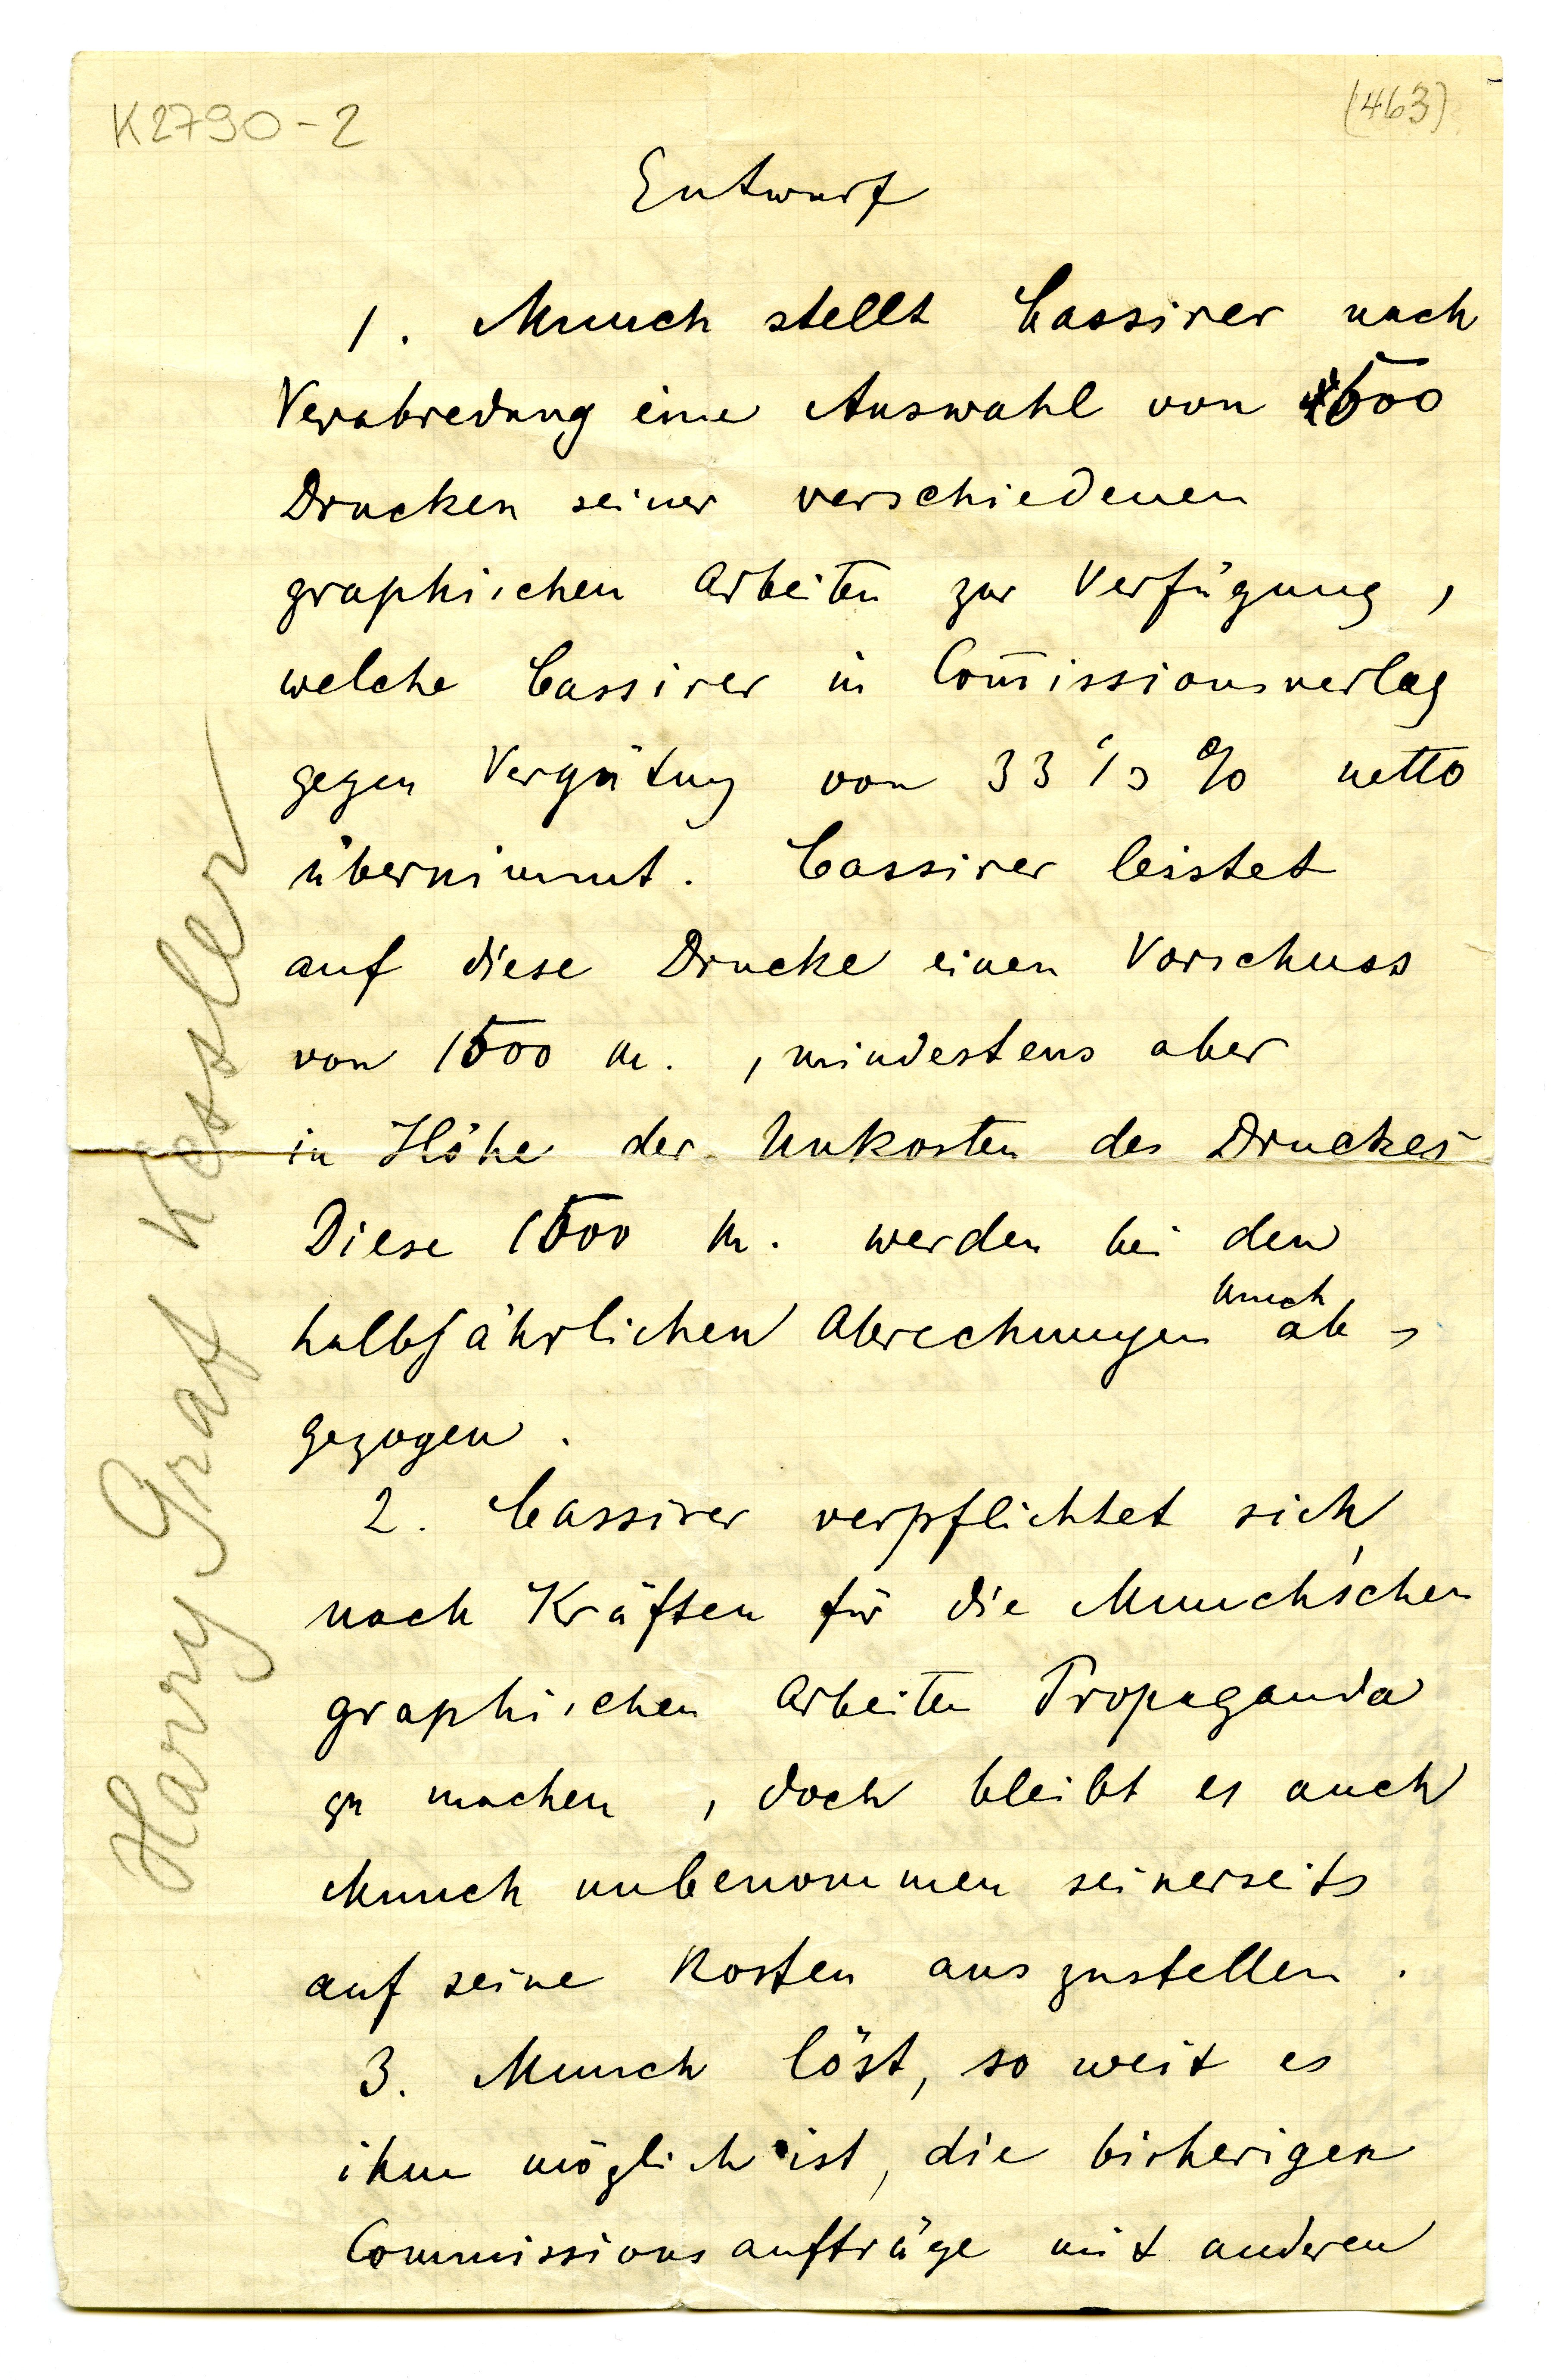 K2790-2
(463)
Entwurf
1. Munch stellt Cassirer nach
Verabredung eine Auswahl von 1500
Drucken seiner verschiedenen
graphischen Arbeiten zur Verfügung,
welche Cassirer in Com̄issionsverlag
gegen Vergütung von 33 1/3 % netto
übernimmt. Cassirer leistet
auf diese Drucke einen Vorschuss
von 1500 M., mindestens aber
in Höhe der Unkosten des Druckes
Diese 1500 M. werden bei den
Munch
halbjährlichen Abrechnungen ab-
gezogen.
2. Cassirer verpflichtet sich
nach Kräften für die Munch'schen
graphischen Arbeiten Propaganda
zu machen, doch bleibt es auch
Munch unbenommen seinerseits
auf seine Kosten auszustellen.
3. Munch löst, so weit es
ihm möglich ist, die bisherigen
Commissionsaufträge mit anderen
Harry Graf Kessler